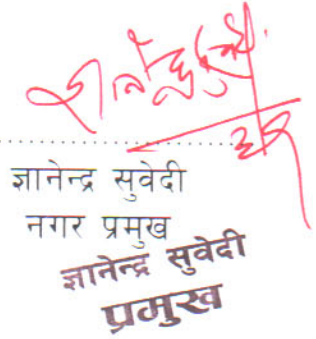 ज्ञानेन्द्र सुवेदी
नगर प्रमुख
ज्ञानेन्द्र सुवेदी
प्रमुख